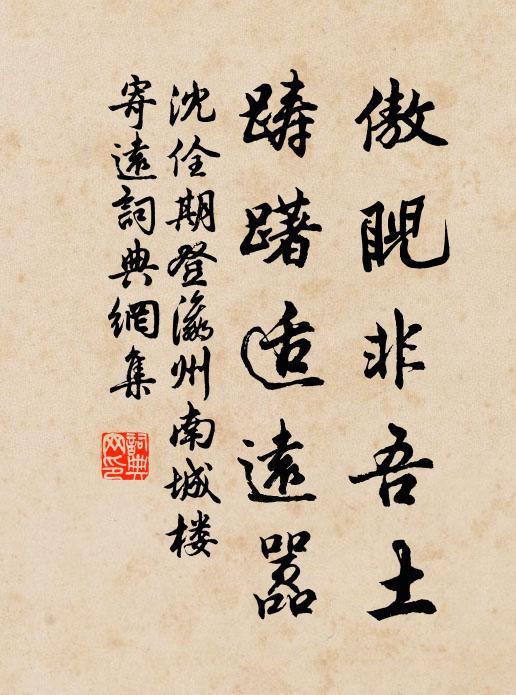 傲睨非吾土
踌躇适远嚣
沈佺期登瀛州南城楼
寄远词典網集
詞典網印